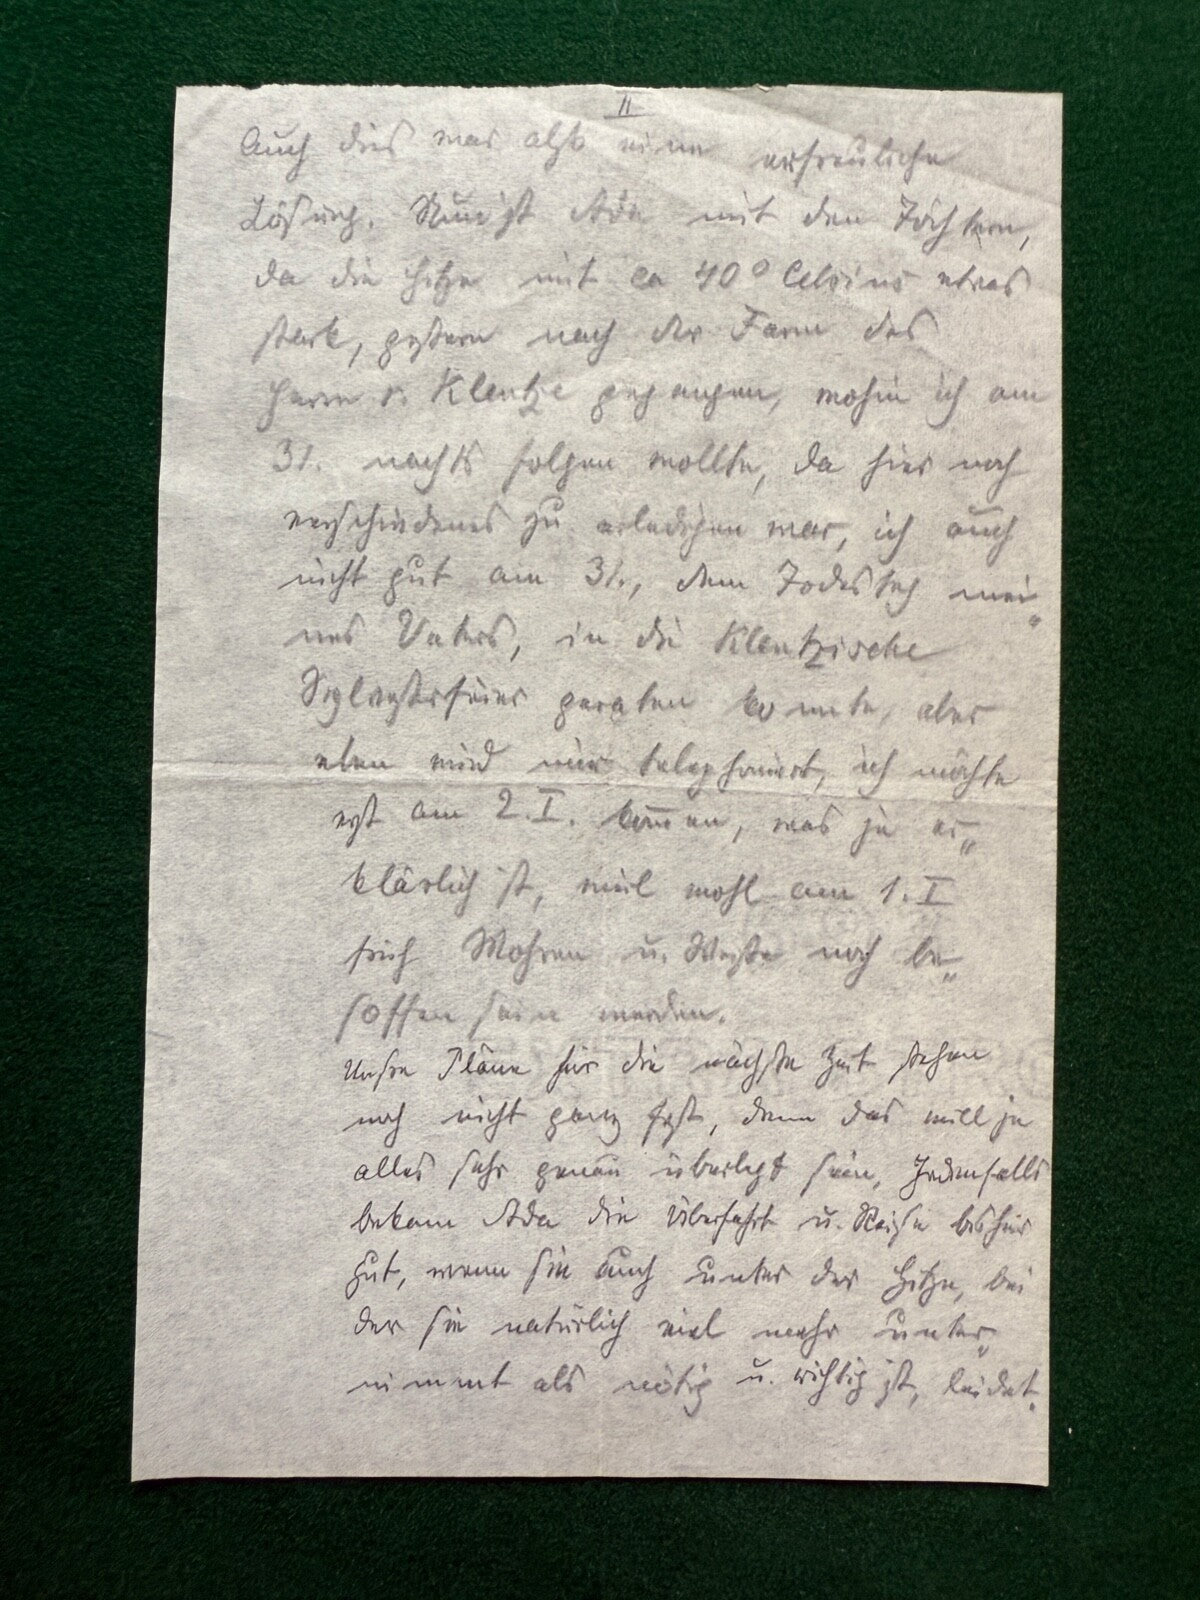 II
Auch dies war also eine erfreuliche
Lösung. Nun ist Ada mit den Töchtern,
da die Hitze mit ca 40° Celsius etwas
stark, gestern nach der Farm des
Herrn v. Klentze gegangen, wohin ich am
31. nachts folgen wollte, da hier noch
verschiedenes zu erledigen war, ich auch
nicht gut am 31., dem Todestag mei„
nes Vaters, in die Klentzische
Sylvesterfeier geraten konnte, aber
eben wird mir telephoniert, ich möchte
erst am 2. I. kom̅en, was ja er„
klärlich ist, weil wohl am 1. I
früh Mohren u. Weiße noch be„
soffen sein werden.
Unsre Pläne für die nächste Zeit stehen
noch nicht ganz fest, denn das will ja
alles sehr genau überlegt sein, Jedenfalls
bekam Ada die Überfahrt u. Reise bisher
gut, wenn sie auch unter der Hitze, bei
der sie natürlich viel mehr unter„
nimmt als nötig u. wichtig ist, leidet.